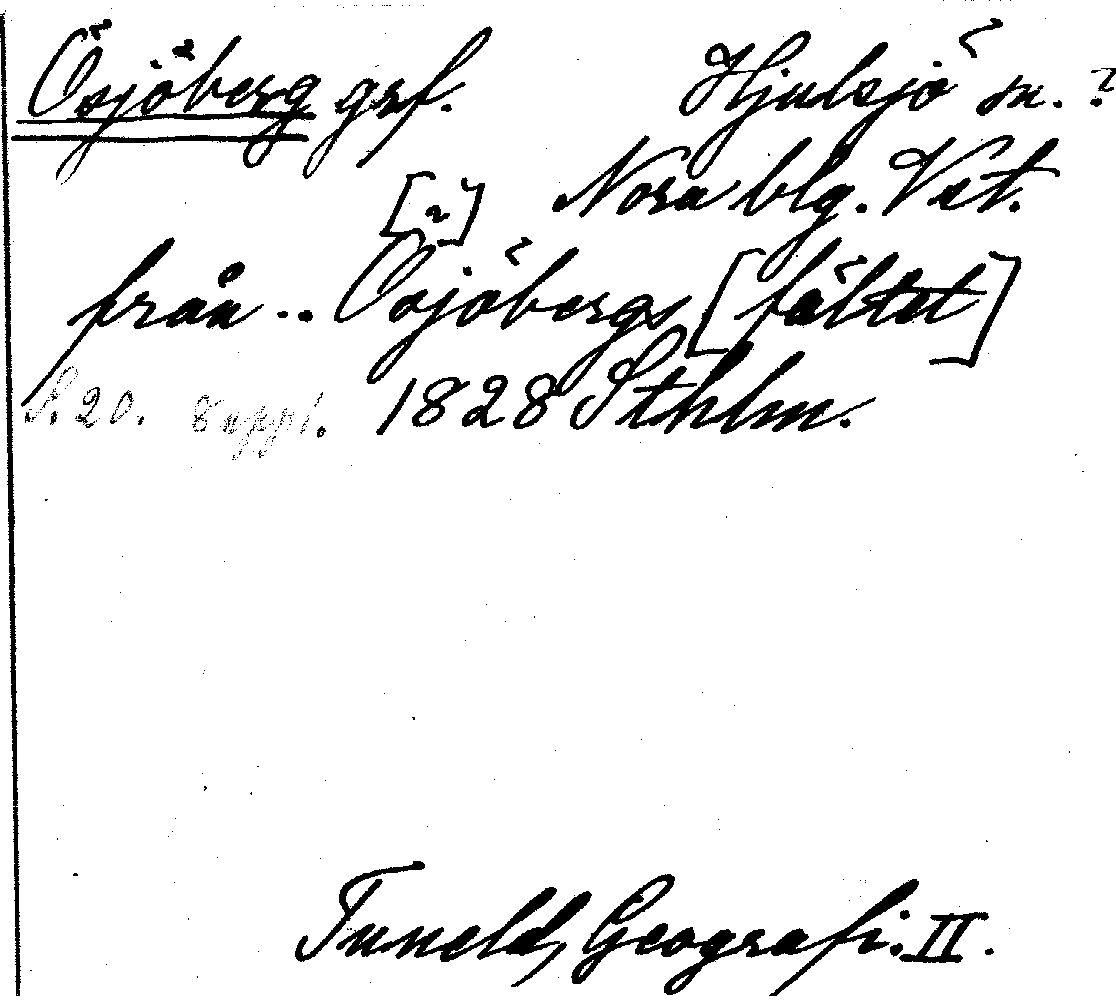 Ösjöberg grf. Hjulsjö sn. ?
Nora blg. Vst.
från .. Ösjöbergs [fältet]
[?]
S. 20. Suppl. 1828 Sthlm.
Tuneld, Geografi. II.